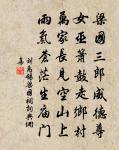 梁國三郎威德尊
女巫簫鼓走鄉村
萬家長見空山上
雨氣蒼茫生廟門
劉禹錫梁國祠詩典網